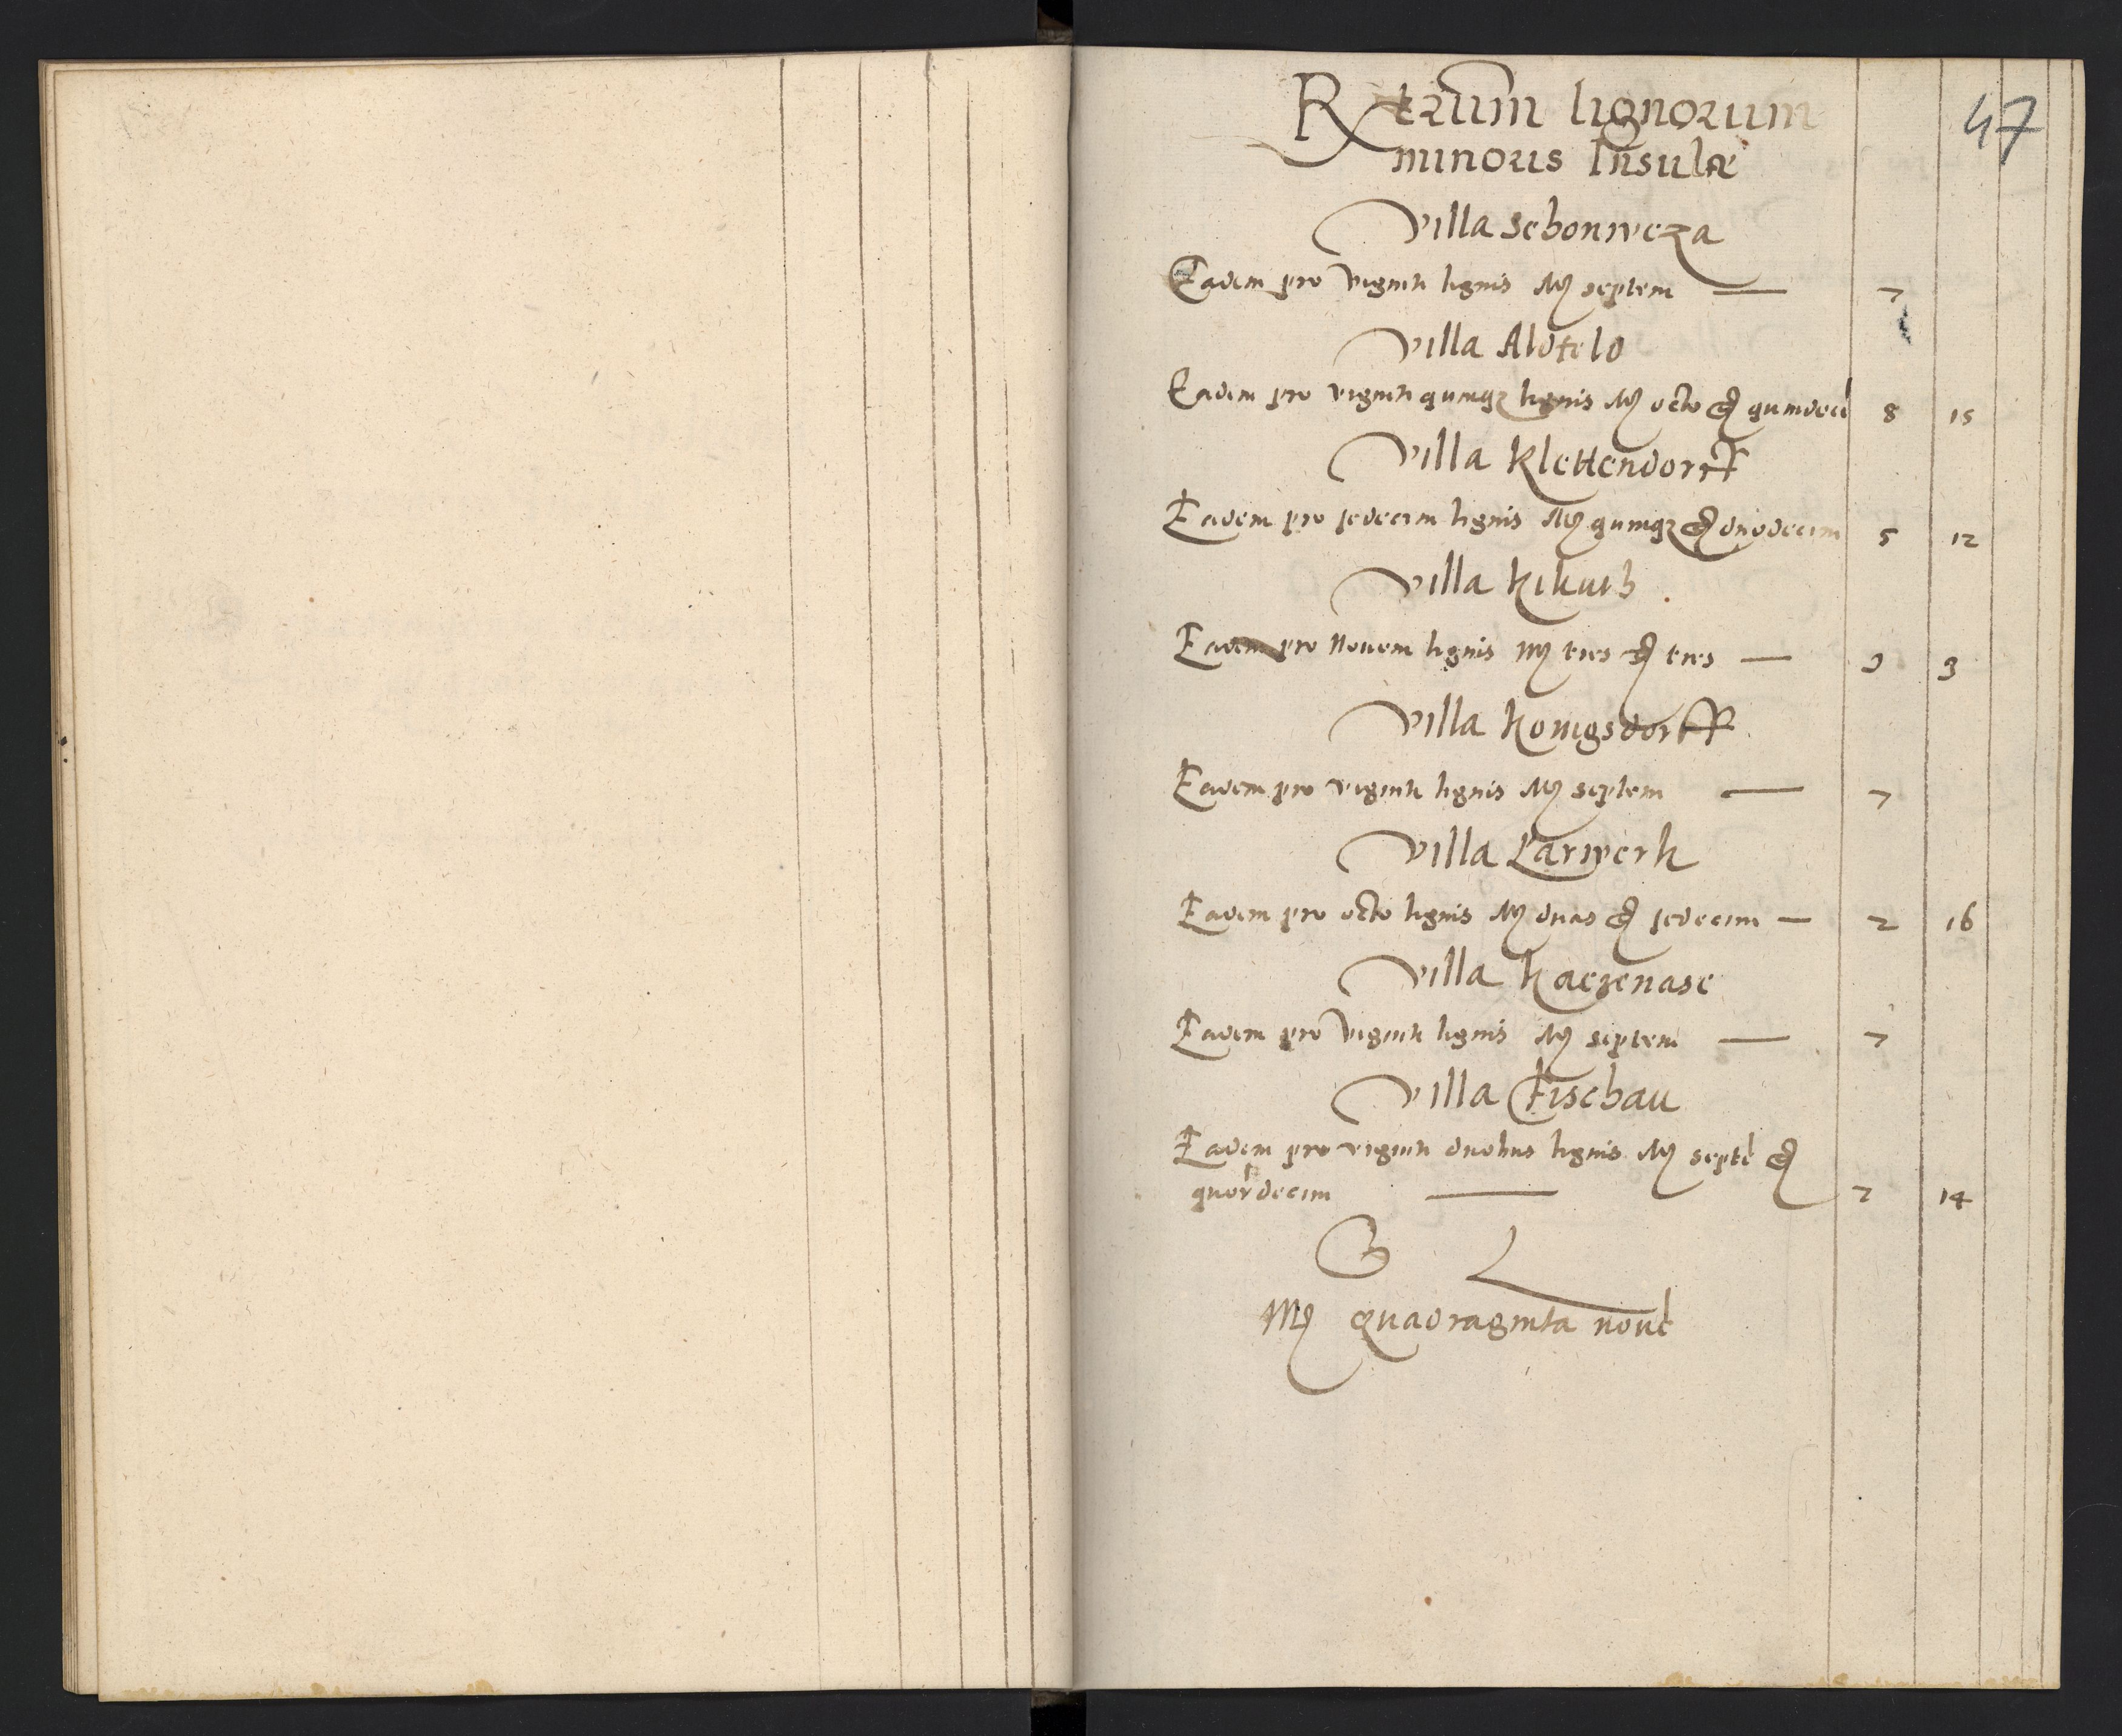 47
Rx terium lignorum
minoris Insulæ
Villa Schonweza
Eadem pro viginti lignis Mr septem — 7
Villa Aldfeld
Eadem pro viginti quinqz lignis Mr octo gr quindeci 8 15
Villa Klettendorff
Eadem pro sedecim lignis Mr quinqz gr duodecim 5 12
Villa Kikuth
Eadem pro Novem lignis Mr tres gr tres — 3 3
Villa Konigsdorff
Eadem pro viginti lignis Mr septem — 7
Villa Parwerk
Eadem pro octo lignis Mr duas gr sedecim — 2 16
Villa Kaczenase
Eadem pro viginti lignis Mr septem — 7
Villa Fischau
Eadem pro viginti duobus lignis Mr septe gr
quordecim — 7 14
Mr quadraginta nove